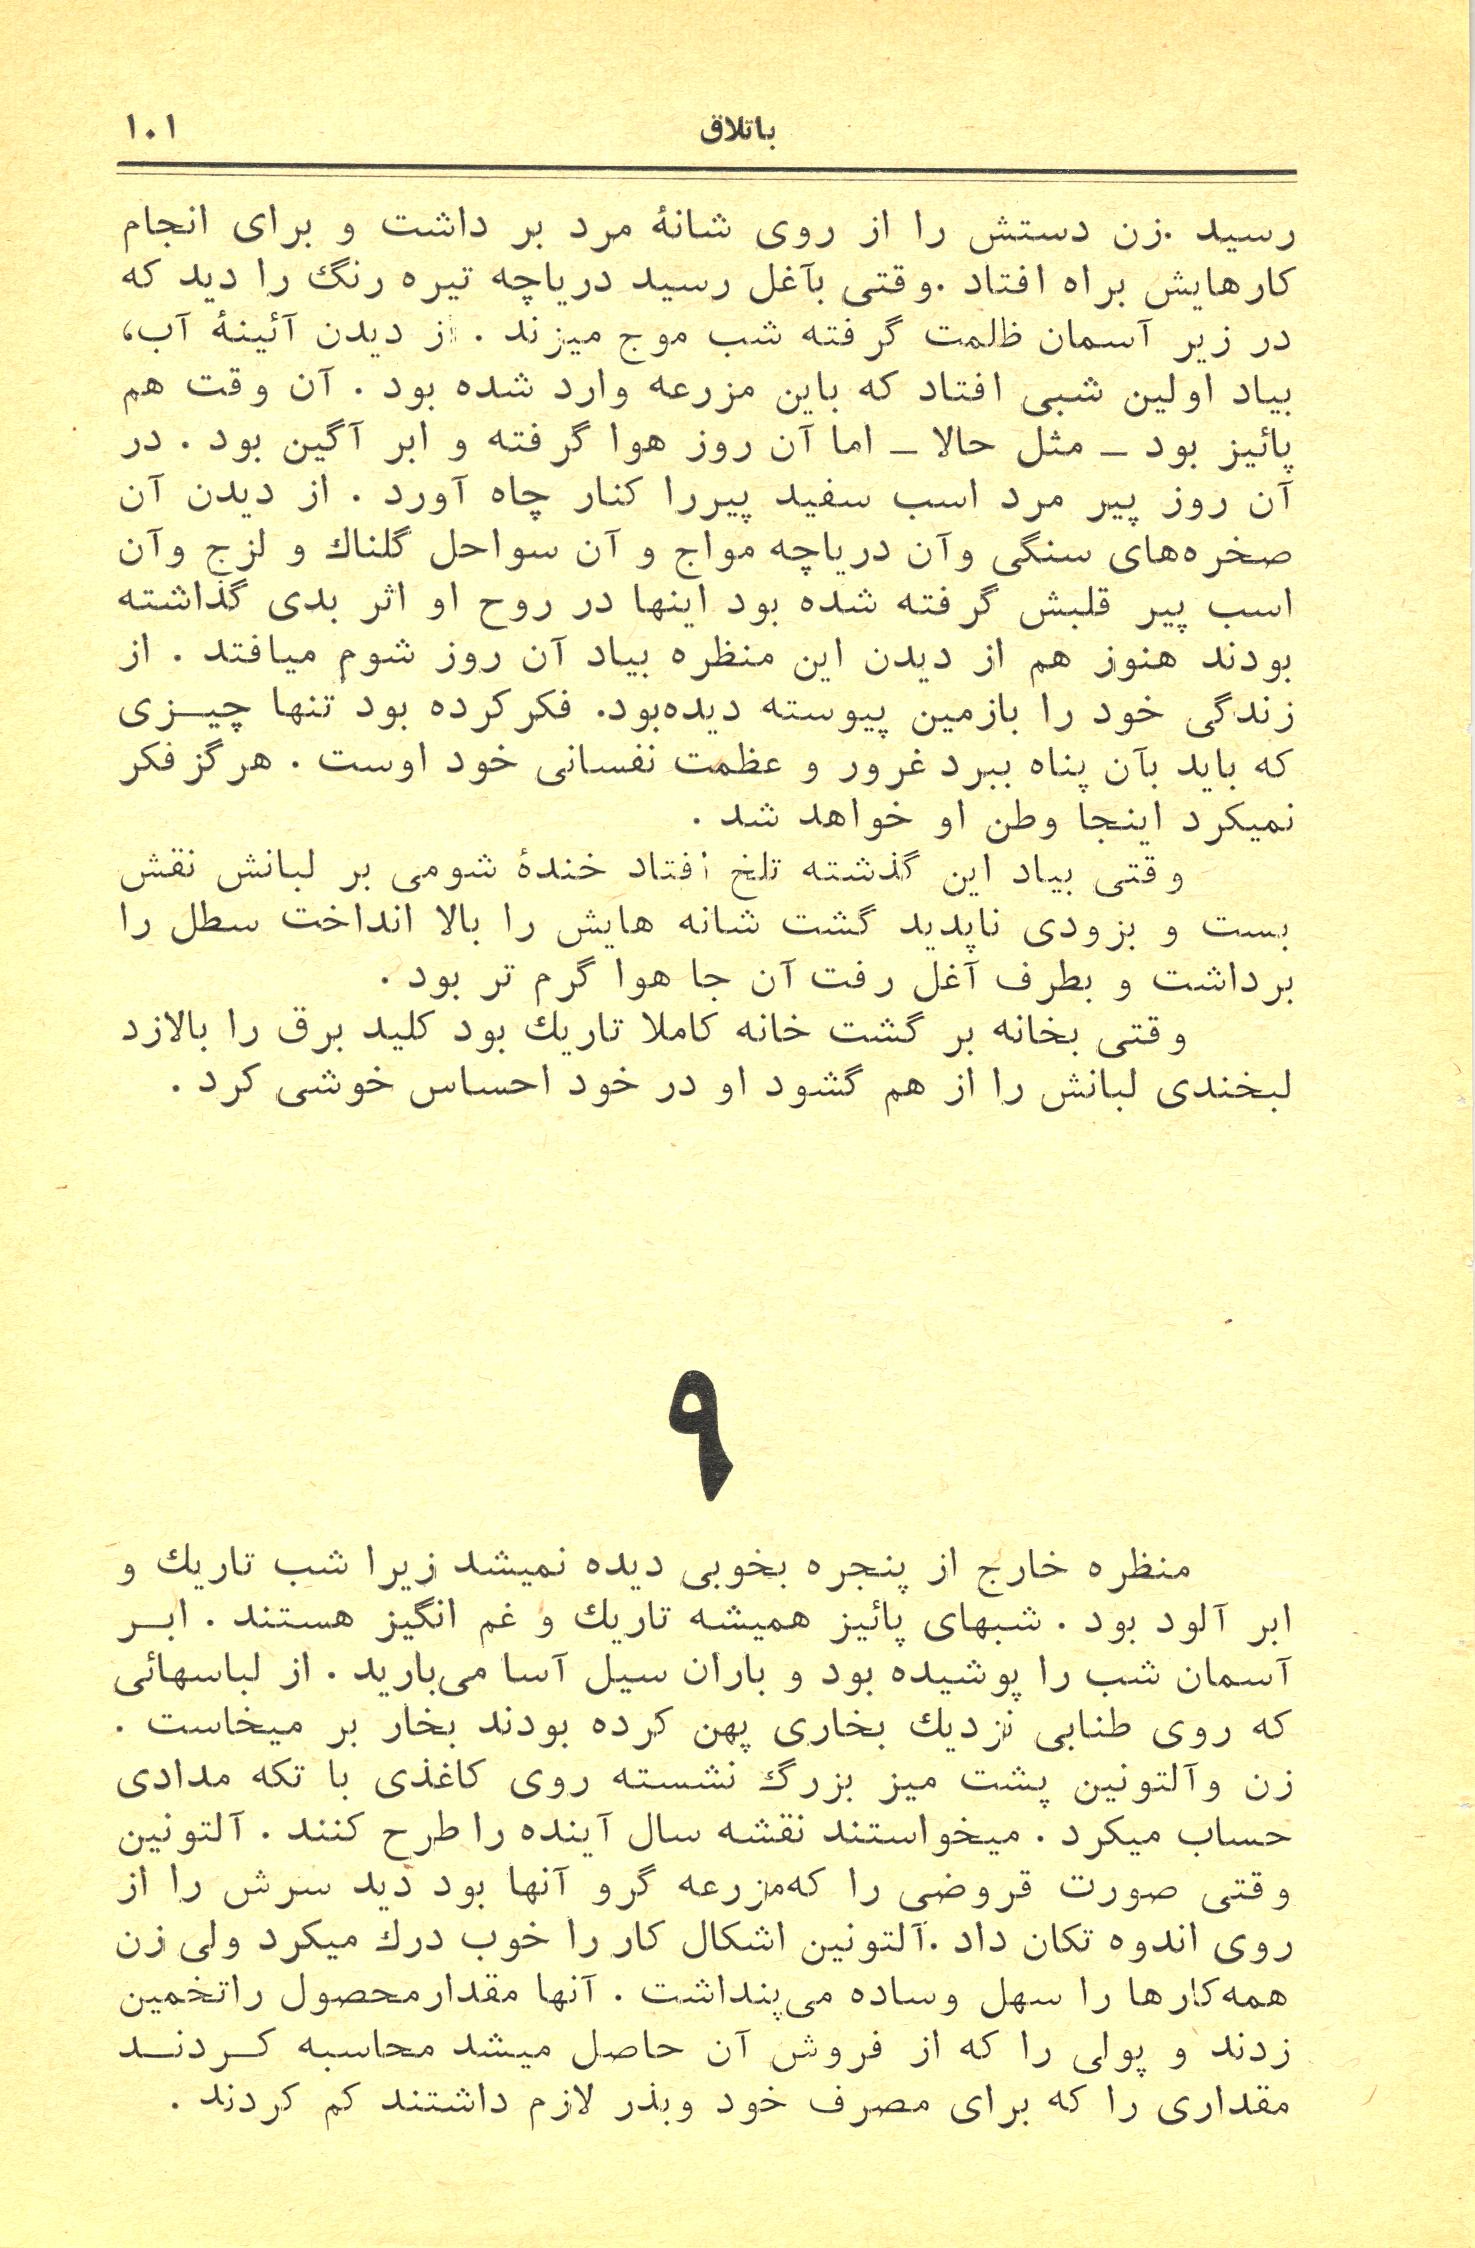 باتلاق ۱۰۱
رسید .زن دستش را از روی شانهٔ مرد بر داشت و برای انجام
کارهایش براه افتاد .وقتی بآغل رسید دریاچه تیره رنگ را دید که
در زیر آسمان ظلمت گرفته شب موج میزند . از دیدن آئینهٔ آب،
بیاد اولین شبی افتاد که باین مزرعه وارد شده بود . آن وقت هم
پائیز بود – مثل حالا – اما آن روز هوا گرفته و ابر آگین بود . در
آن روز پیر مرد اسب سفید پیررا کنار چاه آورد . از دیدن آن
صخره‌های سنگی وآن دریاچه مواج و آن سواحل گلناك و لزج وآن
اسب پیر قلبش گرفته شده بود اینها در روح او اثر بدی گذاشته
بودند هنوز هم از دیدن این منظره بیاد آن روز شوم میافتد . از
زندگی خود را بازمین پیوسته دیده‌بود. فکرکرده بود تنها چیـزی
که باید بآن پناه ببرد غرور و عظمت نفسانی خود اوست . هرگز فکر
نمیکرد اینجا وطن او خواهد شد .
وقتی بیاد این گذشته تلخ افتاد خندهٔ شومی بر لبانش نقش
بست و بزودی ناپدید گشت شانه هایش را بالا انداخت سطل را
برداشت و بطرف آغل رفت آن جا هوا گرم تر بود .
وقتی بخانه بر گشت خانه کاملا تاریك بود کلید برق را بالازد
لبخندی لبانش را از هم گشود او در خود احساس خوشی کرد .
۹
منظره خارج از پنجره بخوبی دیده نمیشد زیرا شب تاریك و
ابر آلود بود . شبهای پائیز همیشه تاریك و غم انگیز هستند . ابـر
آسمان شب را پوشیده بود و باران سیل آسا می‌بارید . از لباسهائی
که روی طنابی نزدیك بخاری پهن کرده بودند بخار بر میخاست .
زن وآلتونین پشت میز بزرگ نشسته روی کاغذی با تکه مدادی
حساب میکرد . میخواستند نقشه سال آینده را طرح کنند . آلتونین
وقتی صورت قروضی را که‌مزرعه گرو آنها بود دید سرش را از
روی اندوه تکان داد .آلتونین اشکال کار را خوب درك میکرد ولی زن
همه‌کارها را سهل وساده می‌پنداشت . آنها مقدارمحصول راتخمین
زدند و پولی را که از فروش آن حاصل میشد محاسبه کـردنـد
مقداری را که برای مصرف خود وبذر لازم داشتند کم کردند .